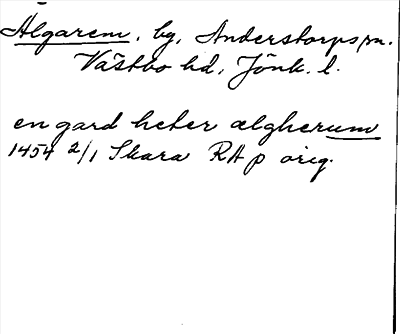 Älgarem, by, Anderstorps sn.
Västbo hd, Jönk. l.
en gard heter ælgherum
1454 2/1 Skara RA p orig.